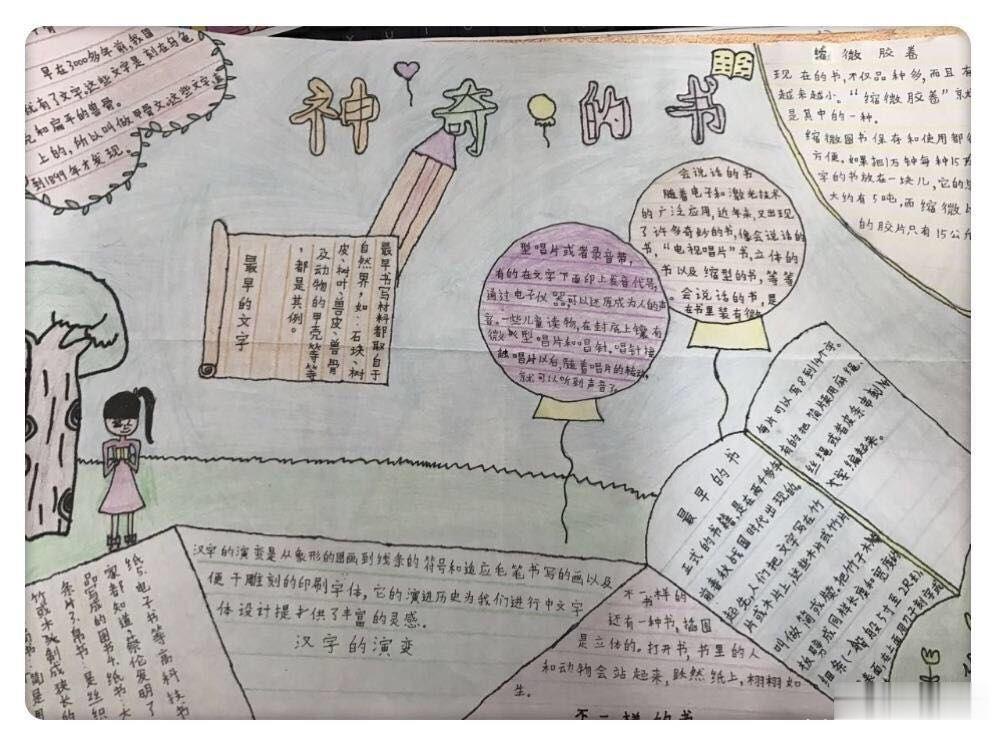 神奇的书
早在3000多年前,我国
就有了文字,这些文字是刻在乌龟
壳和扁平的兽骨
上的,所以叫做甲骨文,这些文字
到1899年才发现。
最早书写材料都取自于
自然界,如:石块、树
皮、树叶、兽皮、兽骨
及动物的甲壳等等
,都是其例。
最早的文字
会说话的书
随着电子和激光技术
的广泛应用,近年来,又出现
了许多奇妙的书,像会说话的
书,“电视唱片”书,立体的
书以及缩型的书,等等
会说话的书,是
在书里装有微
型唱片或者录音带,
有的在文字下面印上发音代号,
通过电子仪器,可以还原成为人的声
音。一些儿童读物,在封底上镶有
微型唱片和唱针。唱针接
触唱片以后,随着唱片的转动,
就可以听到声音了
缩微胶卷
现在的书,不仅品种多,而且
越来越小。“缩微胶卷”
是其中的一种。
缩微图书保存和使用都
方便。如果把1万钟每种15万
字的书放在一块儿,它的
大约有5吨,而缩微
的胶片只有15公斤
最早的书
正式的书籍,是在两千多年
前春秋战国时代出现的
起先人们把文字写在竹
片或木片上,这些木片或竹片
叫做简或牍。把竹子木
板劈成同样长度和宽度的
细条(一般般5寸至2尺
表面,在上面用刀子刻字或
每片可以写8到14个字。
有的把简片使用麻绳、
丝绳或者皮条串到
文字编起来。
汉字的演变是从象形的图画到线条的符号和适应毛笔书写的画以及
便于雕刻的印刷字体,它的演进历史为我们进行中文字
体设计提才供了丰富的灵感。
汉字的演变
不一样的
书样的
还有一种书,插图
是立体的。打开书,书里的人
和动物会站起来,跃然纸上,栩栩如
生。
不一样的书
纸5.电子书等高科技书
家都知道,蔡伦发明了
品写成的图书4.纸书:大
条片3.帛书:是丝织
竹或木头制成狭长的